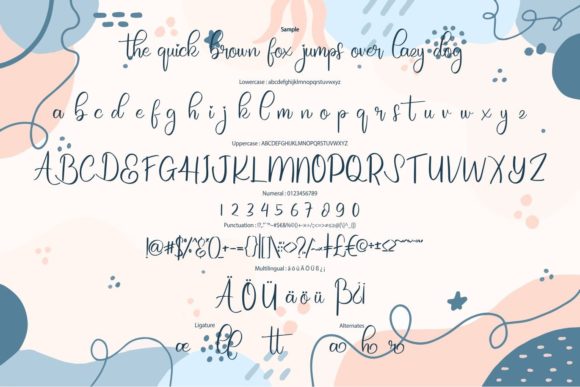 Sample
the quick brown fox jumps over lazy dog
Lowercase : abcdefghijklmnopqrstuvwxyz
a b c d e f g h i j k l m n o p q r s t u v w x y z
Uppercase : ABCDEFGHIJKLMNOPQRSTUVWXYZ
ABCDEFGHIJKLMNOPQRSTUVWXYZ
Numeral : 0123456789
1 2 3 4 5 6 7 8 9 0
Punctuation :
Multilingual : ä ö ü Ä Ö Ü ß ¿¡
Ä Ö Ü ä ö ü ß ¿¡
Ligature Alternates
æ tt